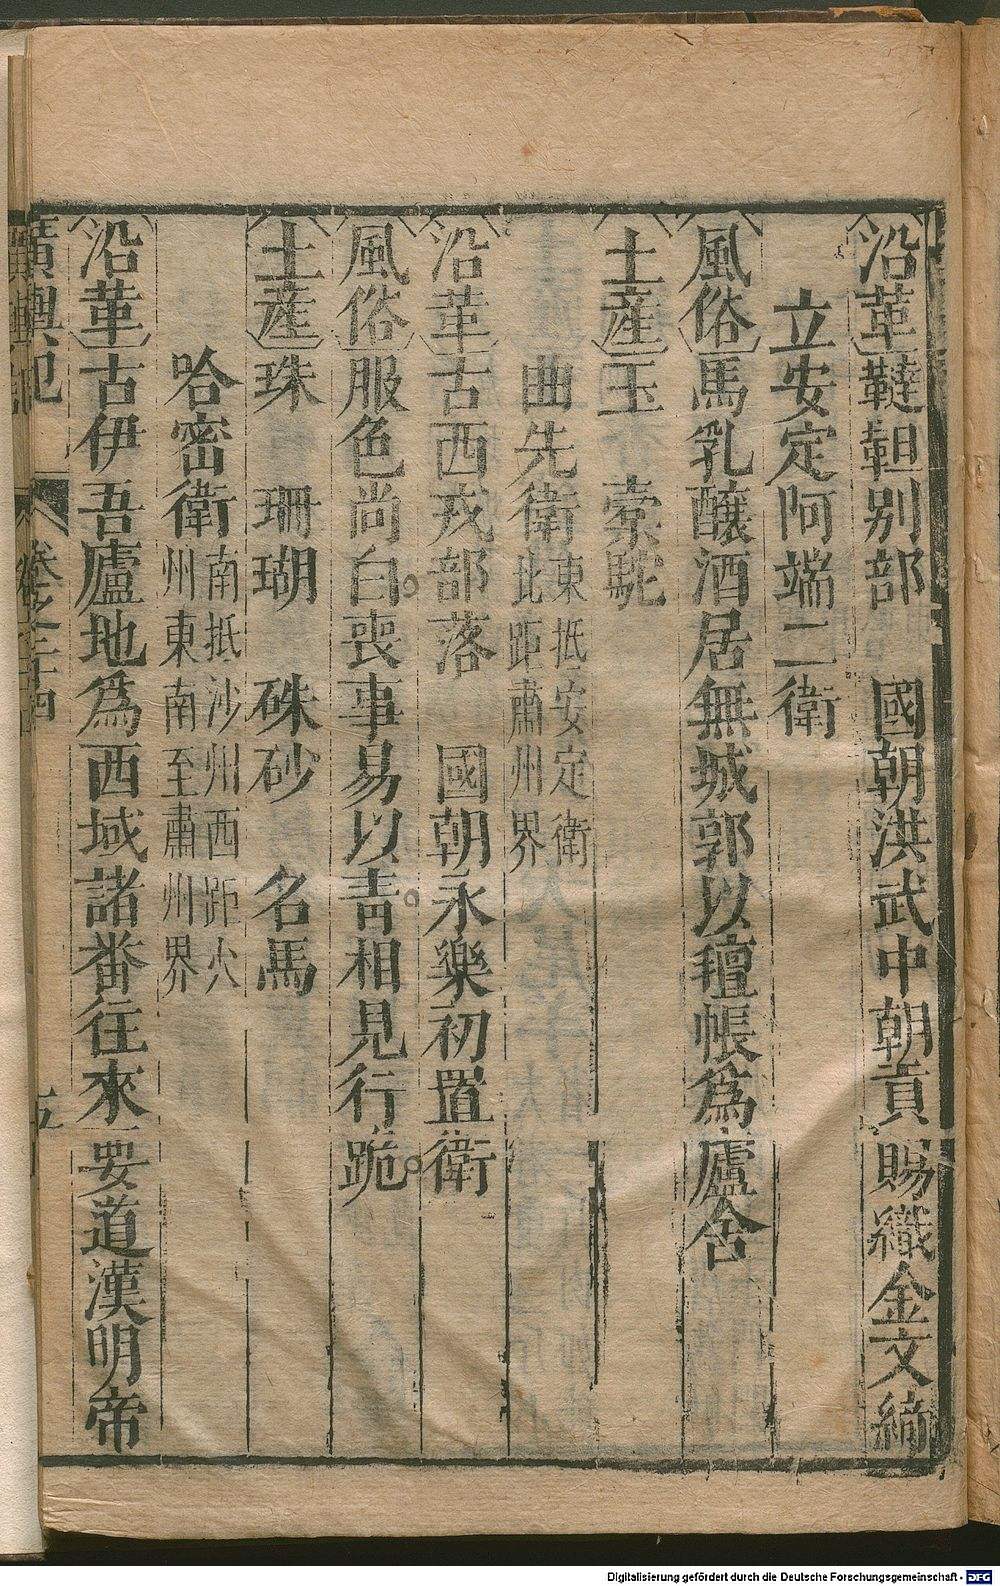 沿革韃靼別部　國朝洪武中朝貢賜織金文綺
立安定阿端二衛
風俗馬乳釀酒居無城郭以氊帳爲廬舍
土産玉　橐駝
曲先衛東抵安定衛北距肅州界
沿革古西戎部落　國朝永樂初置衛
風俗服色尚白喪事易以青相見行跪
土産珠　珊瑚　硃砂　名馬
哈密衛南抵沙州西距火州東南至肅州界
沿革古伊吾廬地爲西域諸番往來要道漢明帝
廣輿記　卷之二十四　五
Digitalisierung gefördert durch die Deutsche Forschungsgemeinschaft - DFG